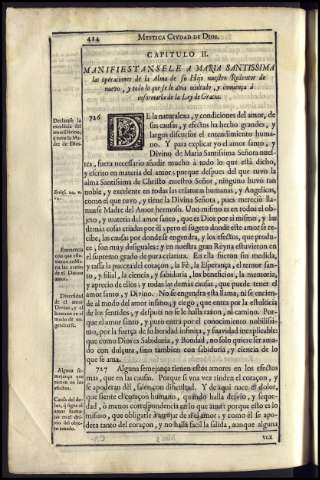 424 MYSTICA CIVDAD DE DIOS.
CAPITULO II.
MANIFIESTANSELE A MARIA SANTISSIMA
las operaciones de la Alma de su Hijo nuestro Redentor de
nuevo, y todo lo que se le avia ocultado, y comiença à
informarla de la Ley de Gracia.
726 DE la naturaleza, y condiciones del amor, de
sus causas, y efectos ha hecho grandes, y
largos discursos el entendimiento huma-
no. Y para explicar yo el amor santo, y
Divino de Maria Santissima Señora nues-
tra, fuera necessario añadir mucho à todo lo que està dicho,
y escrito en materia del amor; porque despues del que tuvo la
alma Santissima de Christo nuestro Señor, ninguno huvo tan
noble, y excelente en todas las criaturas humanas, y Angelicas,
como el que tuvo, y tiene la Divina Señora, pues mereciò lla-
marse Madre del Amor hermoso. Uno mismo es en todas el ob-
jeto, y materia del amor santo, que es Dios por si mismo, y las
demàs cosas criadas por èl; pero el sugeto donde este amor se re-
cibe, las causas por donde se engendra, y los efectos, que produ-
ce, son muy desiguales; y en nuestra gran Reyna estuvieron en
el supremo grado de pura criatura. En ella fueron sin medida,
y tassa la pureza del coraçon, la Fè, la Esperança, el temor san-
to, y filial, la ciencia, y sabiduria, los beneficios, la memoria,
y aprecio de ellos, y todas las demàs causas, que puede tener el
amor santo, y Divino. No se engendra esta llama, ni se encien-
de al modo del amor insano, y ciego, que entra por la estulticia
de los sentidos, y despues no se le halla razon, ni camino. Por-
que el amor santo, y puro entra por el conocimiento nobilissi-
mo, por la fuerça de su bondad infinita, y suavidad inexplicable;
que como Dios es Sabiduria, y Bondad, no solo quiere ser ama-
do con dulçura, sino tambien con sabiduria, y ciencia de lo
que se ama.
727 Alguna semejança tienen estos amores en los efectos
mas, que en las causas. Porque si una vez rinden el coraçon, y
se apoderan dèl, salen con dificultad. Y de aqui nace el dolor,
que siente el coraçon humano, quando halla desvio, y seque-
dad, ò menos correspondencia en lo que ama; porque esto es lo
mismo, que obligarle à arrojar de sì el amor; y como èl se apo-
dera tanto del coraçon, y no halla facil la salida, aunque alguna
Declarase la
Diversidad
de el amor
Alguna se-
mejança que